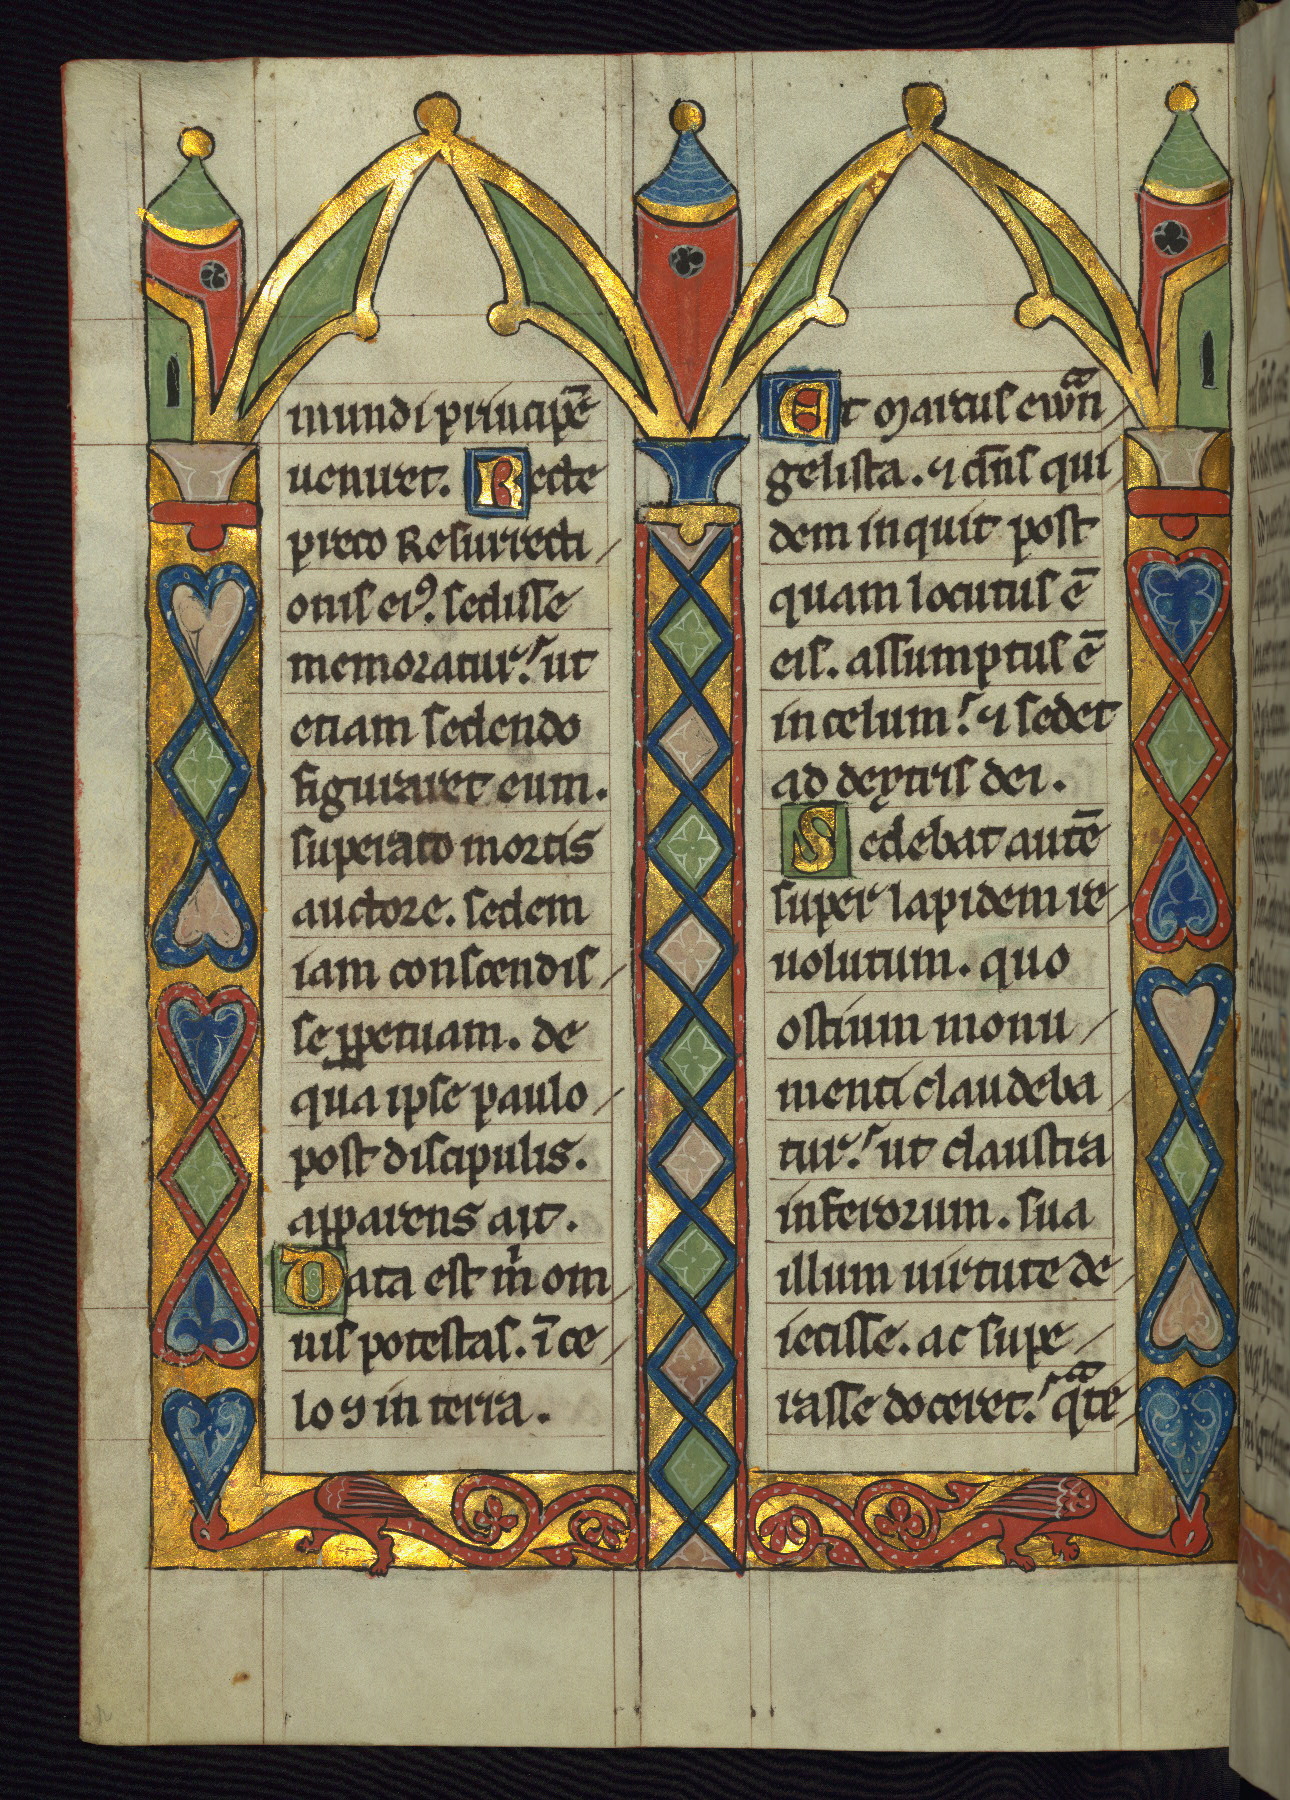 mundi principē
uenuet. Recte
preco Resurrecti
onis eiꝰ. sedisse
memoratur. ut
etiam sedendo
figuraret eum.
superato mortis
auctore. sedem
iam conscendis
se ꝑpetuam. de
qua ipse paulo
post discipulis.
apparens ait.
Data est m̍ om
nis potestas. ī ce
lo ⁊ in terra.
Et Marcus ewan
gelista. ⁊ dn̄s qui
dem inquit post
quam locutus ē
eis. assumptus ē
in celum. ⁊ sedet
ad dextris dei.
Sedebat autē
super lapidem re
uolutum. quo
ostium monu
menti claudeba
tur. ut claustra
inferorum. sua
illum uirtute de
iecisse. ac supe
rasse doceret.